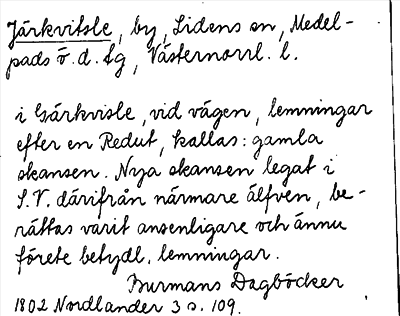 Järkvitsle, by, Lidens sn, Medel-
pads v. d. tg, Västernorrl. l.
i Gärkvisle, vid vägen, lemningar
efter en Redut, kallas: gamla
skansen. Nya skansen legat i
S.V. därifrån närmare älfven, be-
rättas varit ansenligare och ännu
förete betydl. lemningar.
Burmans Dagböcker
1802 Nordlander 3 s. 109.